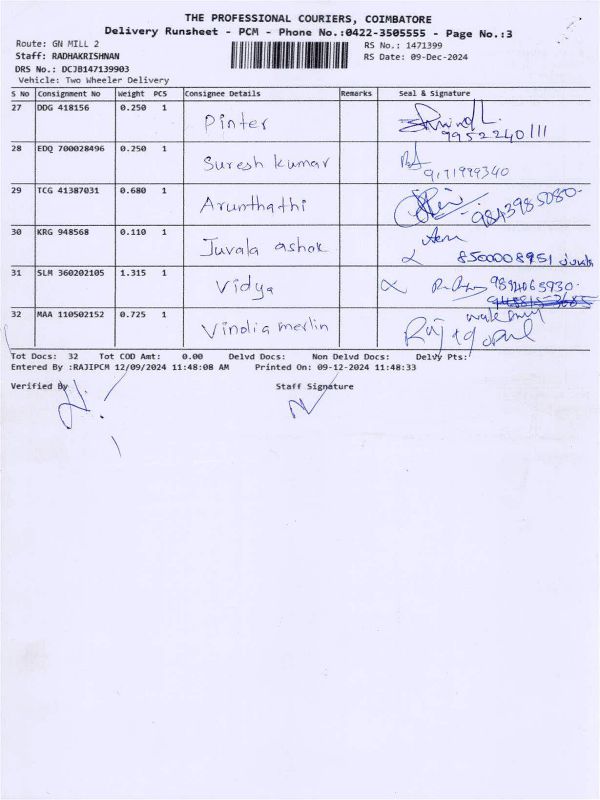 THE PROFESSIONAL COURIERS, COIMBATORE
Delivery Runsheet - PCM - Phone No.:0422-3505555 - Page No.:3
Route: GN MILL 2
RS No.: 1471399
Staff: RADHAKRISHNAN
RS Date: 09-Dec-2024
DRS No.: DCJB147139903
Vehicle: Two Wheeler Delivery
S No Consignment No Weight PCS Consignee Details Remarks Seal & Signature
27 DDG 418156 0.250 1 Pinter
9952240111
28 EDQ 700028496 0.250 1 Suresh kumar
9171999340
29 TCG 41387031 0.680 1 Arunthathi
9843985080
30 KRG 948568 0.110 1 Juvala ashok
8500008951
31 SLM 360202105 1.315 1 Vidya
32 MAA 110502152 0.725 1 Vinolia merlin
Tot Docs: 32 Tot COD Amt: 0.00 Delvd Docs: Non Delvd Docs: Delvy Pts:
Entered By :RAJIPCM 12/09/2024 11:48:08 AM Printed On: 09-12-2024 11:48:33
Verified By Staff Signature